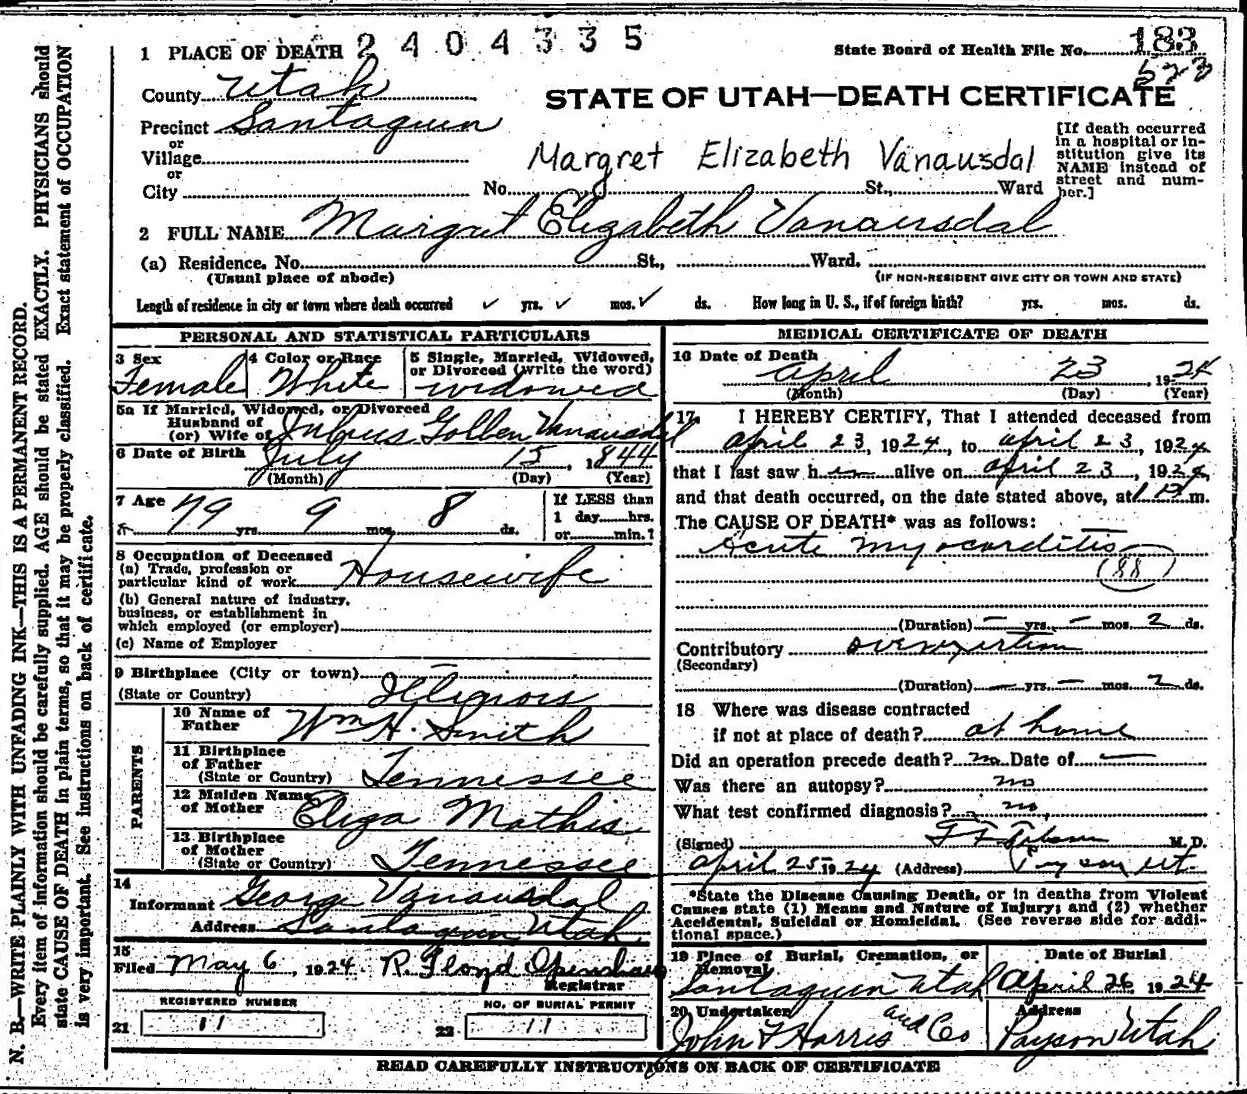 1 PLACE OF DEATH 2404335
State Board of Health File No. 183
523
County Utah
STATE OF UTAH—DEATH CERTIFICATE
Precinct Santaquin
or
Village
or
City
No. St., Ward
Margret Elizabeth Vanausdal
[If death occurred
in a hospital or in-
stitution give its
NAME instead of
street and num-
ber.]
2 FULL NAME Margret Elizabeth Vanausdal
(a) Residence. No. St., Ward.
(Usual place of abode)
(IF NON-RESIDENT GIVE CITY OR TOWN AND STATE)
Length of residence in city or town where death occurred ✓ yrs. ✓ mos. ✓ ds. How long in U. S., if of foreign birth? yrs. mos. ds.
PERSONAL AND STATISTICAL PARTICULARS
3 Sex Female
4 Color or Race White
5 Single, Married, Widowed,
or Divorced (write the word)
widowed
5a If Married, Widowed, or Divorced
Husband of
(or) Wife of Vanausdal
6 Date of Birth July 15, 1844
(Month) (Day) (Year)
7 Age 79 yrs. 9 mos. 8 ds.
If LESS than
1 day hrs.
or min.?
8 Occupation of Deceased
(a) Trade, profession or
particular kind of work Housewife
(b) General nature of industry,
business, or establishment in
which employed (or employer)
(c) Name of Employer
9 Birthplace (City or town)
(State or Country) Illinois
PARENTS
10 Name of
Father Wm H. Smith
11 Birthplace
of Father
(State or Country) Tennessee
12 Maiden Name
of Mother Eliza Mathis
13 Birthplace
of Mother
(State or Country) Tennessee
14
Informant George Vanausdal
Address Santaquin Utah
15
Filed May 6, 1924 R. Floyd Openshaw
Registrar
REGISTERED NUMBER
21 11
NO. OF BURIAL PERMIT
22 11
MEDICAL CERTIFICATE OF DEATH
16 Date of Death
April 23, 1924
(Month) (Day) (Year)
17 I HEREBY CERTIFY, That I attended deceased from
April 23, 1924, to April 23, 1924
that I last saw h alive on April 23, 1924,
and that death occurred, on the date stated above, at m.
The CAUSE OF DEATH* was as follows:
Acute myocarditis
(88)
(Duration) — yrs. — mos. 2 ds.
Contributory overexertion
(Secondary)
(Duration) — yrs. — mos. 2 ds.
18 Where was disease contracted
if not at place of death? at home
Did an operation precede death? no Date of —
Was there an autopsy? no
What test confirmed diagnosis? no
(Signed) M. D.
April 25 1924 (Address) Payson Ut.
*State the Disease Causing Death, or in deaths from Violent
Causes state (1) Means and Nature of Injury; and (2) whether
Accidental, Suicidal or Homicidal. (See reverse side for addi-
tional space.)
19 Place of Burial, Cremation, or
Removal
Santaquin Utah
Date of Burial
April 26, 1924
20 Undertaken
John F Harris and Co
Address
Payson Utah
READ CAREFULLY INSTRUCTIONS ON BACK OF CERTIFICATE
N. B.—WRITE PLAINLY WITH UNFADING INK—THIS IS A PERMANENT RECORD.
Every item of information should be carefully supplied. AGE should be stated EXACTLY. PHYSICIANS should
state CAUSE OF DEATH in plain terms, so that it may be properly classified. Exact statement of OCCUPATION
is very important. See instructions on back of certificate.